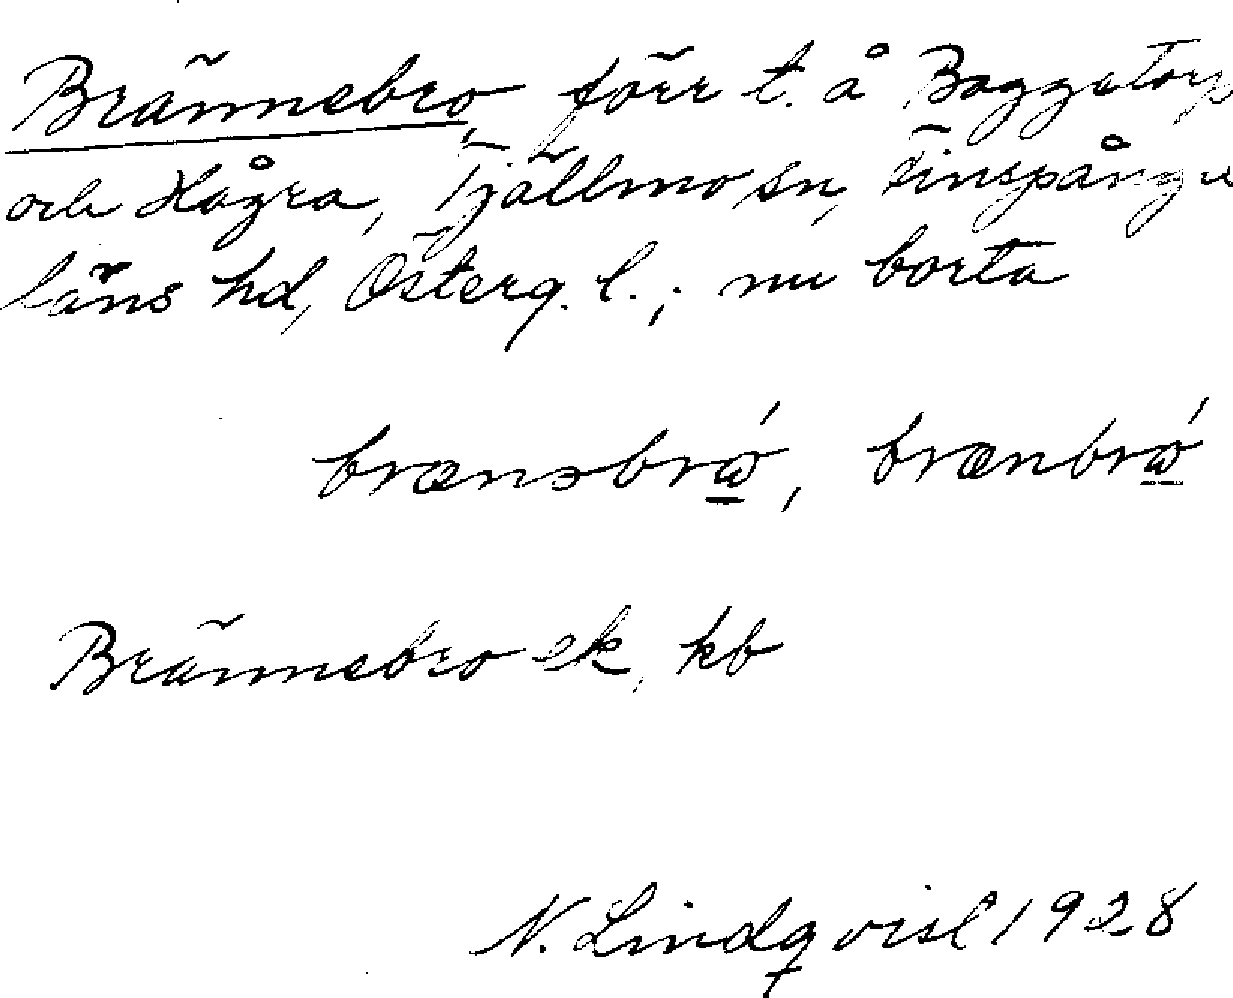 Brännebro, förr t. å Baggetorp
och Hågra, Tjällmo sn, Finspånga
läns hd, Österg. l.; nu borta
brænəbrɷ́, brænbrɷ́
Brännebro ek, kb
N. Lindqvist 1928